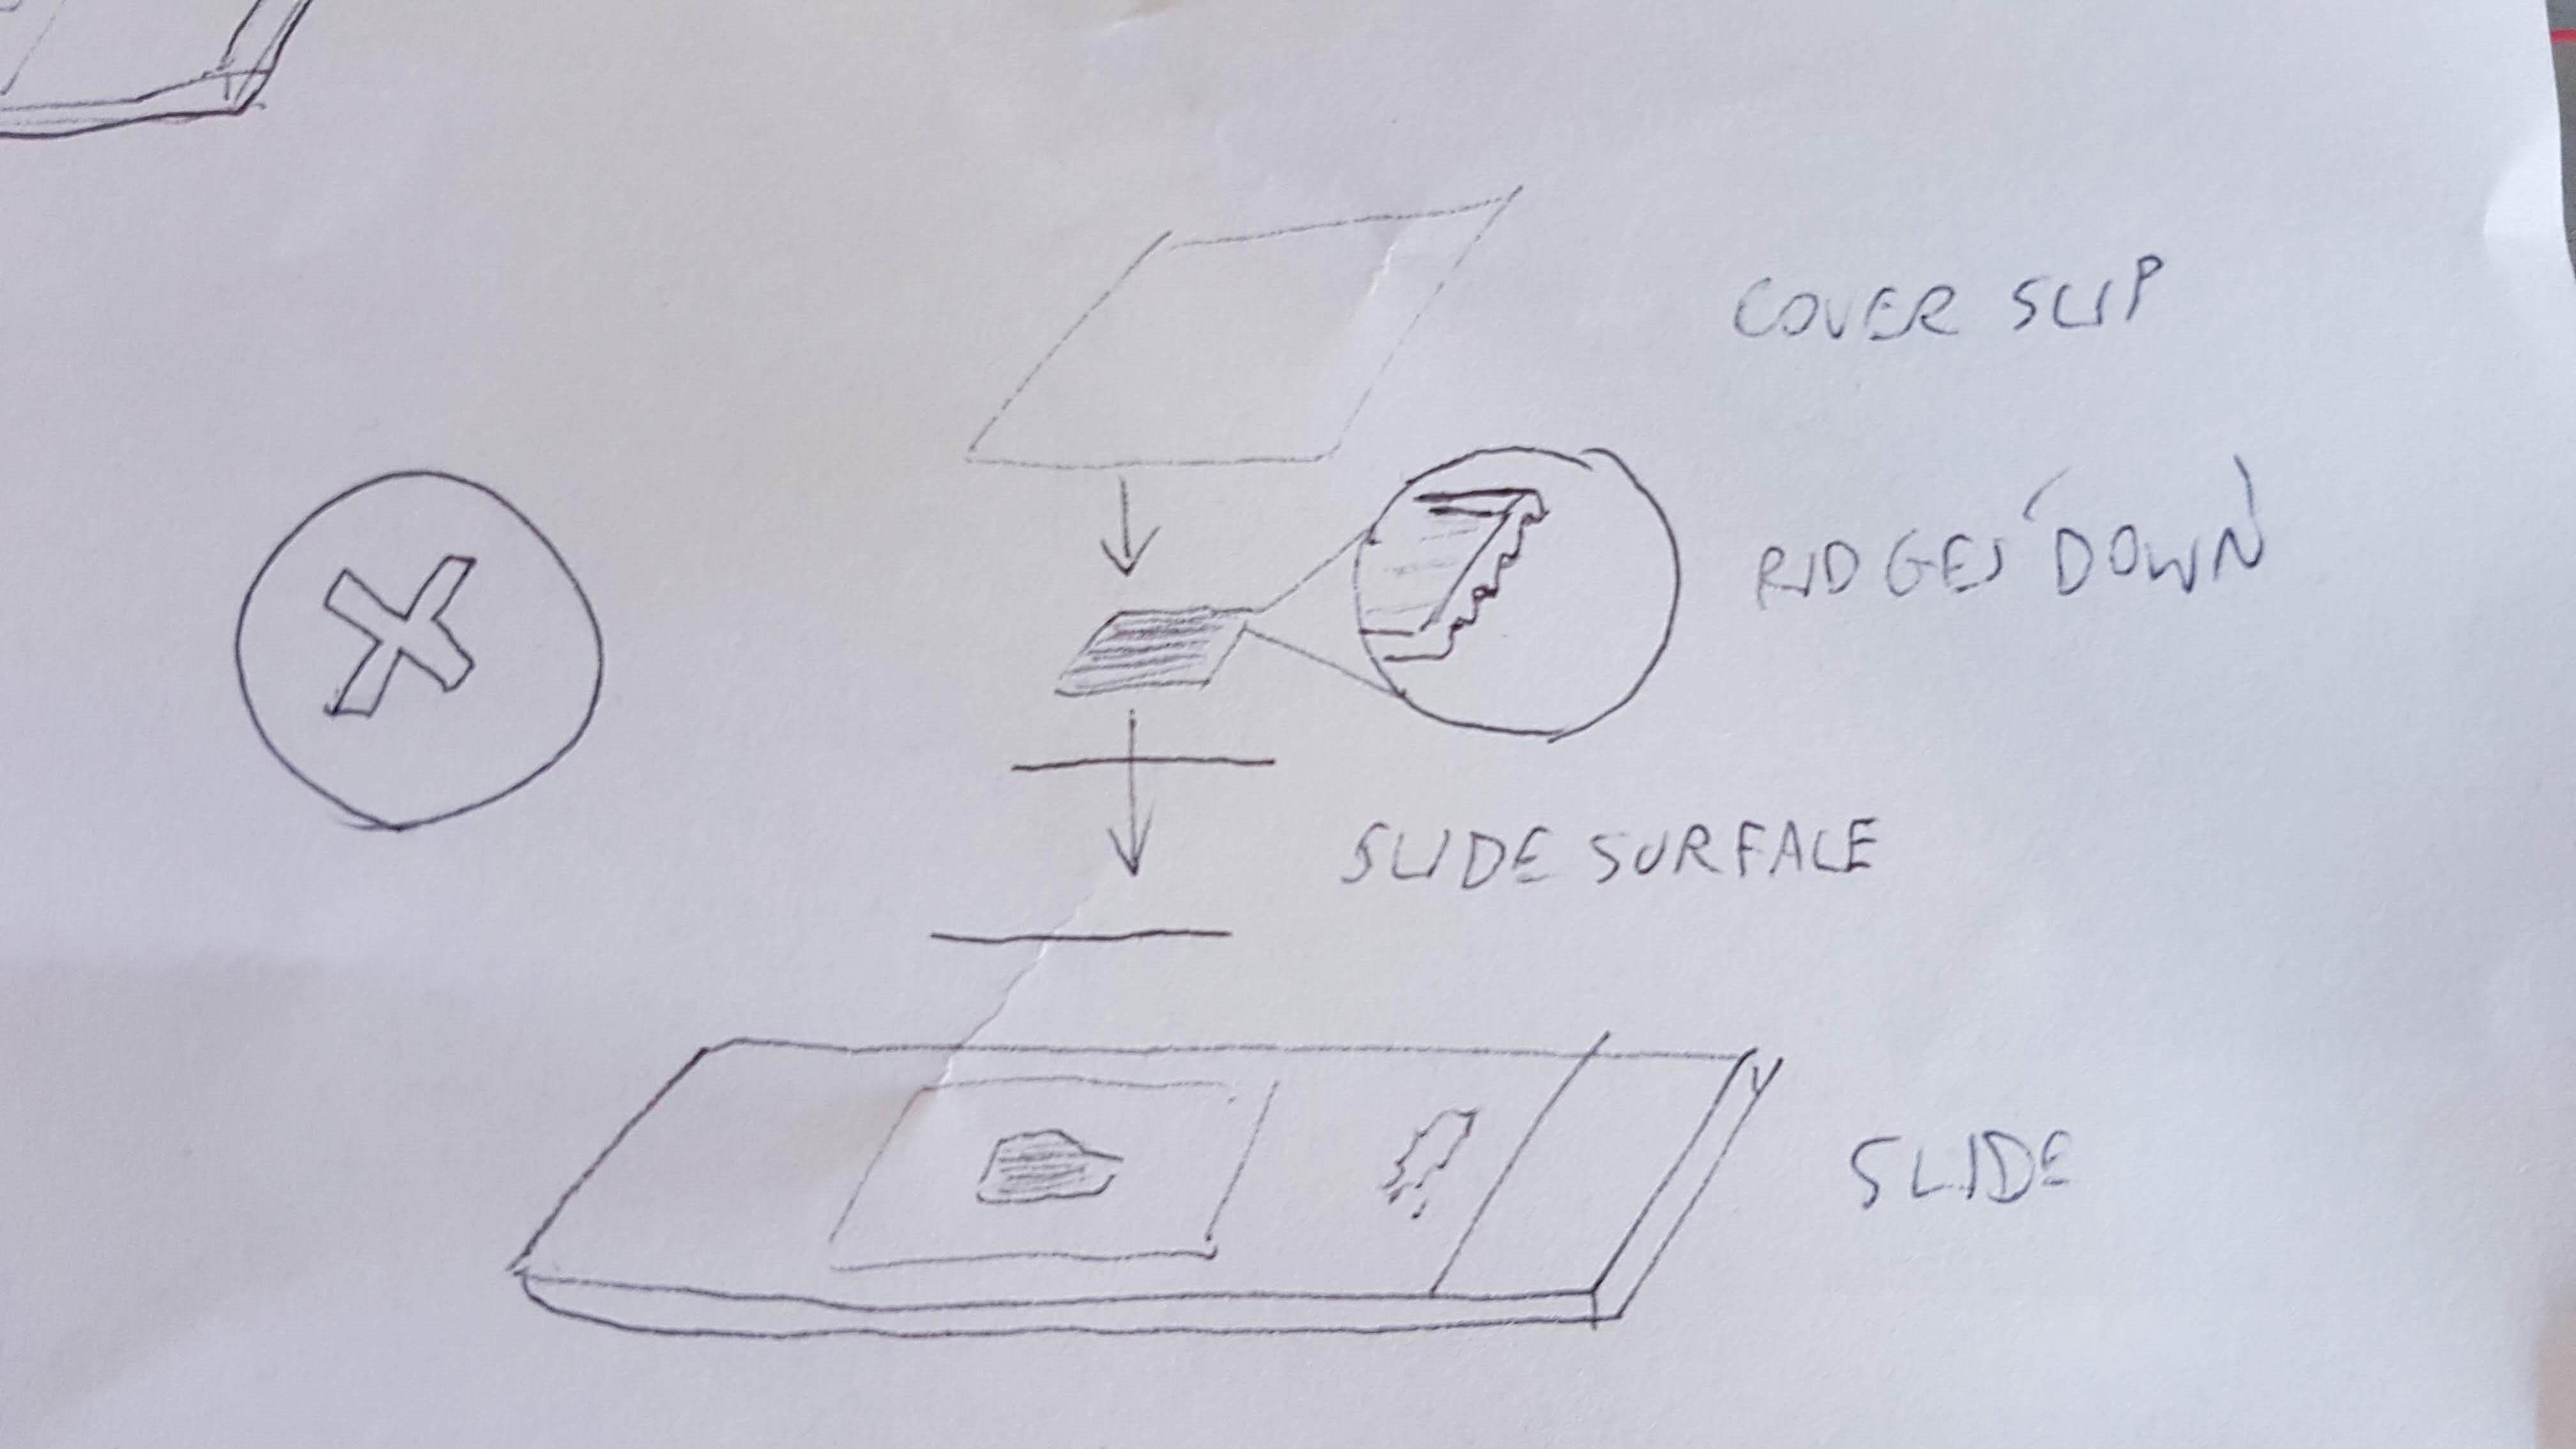 COVER SLIP
RIDGES DOWN
SLIDE SURFACE
SLIDE